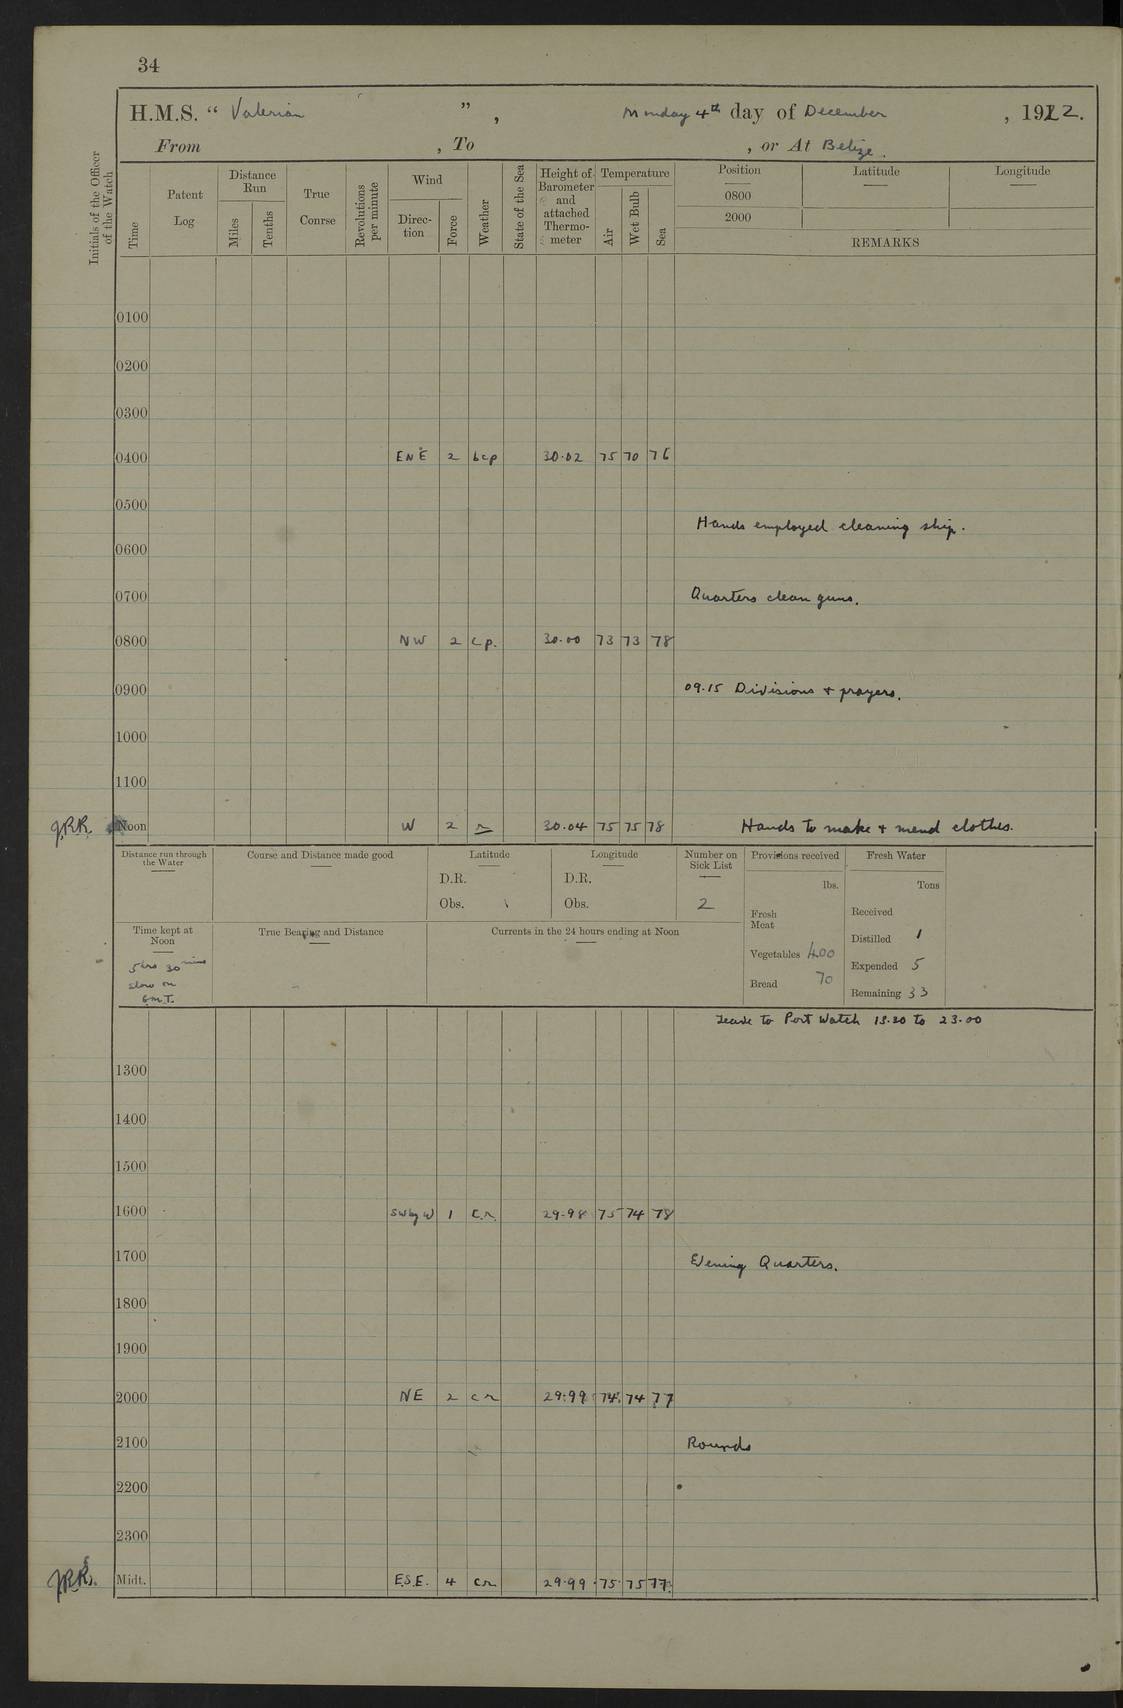 34
H.M.S. “ Valerian ” , Monday 4th day of December , 1922.
From , To , or At Belize.
Initials of the Officer of the Watch
Time
Patent Log
Distance Run
Miles
Tenths
True Course
Revolutions per minute
Wind
Direc-tion
Force
Weather
State of the Sea
Height of Barometer and attached Thermo-meter
Temperature
Air
Wet Bulb
Sea
Position
Latitude
Longitude
0800
2000
REMARKS
0100
0200
0300
0400 ENE 2 bcp 30.02 75 70 76
0500
Hands employed cleaning ship.
0600
0700 Quarters clean guns.
0800 NW 2 cp. 30.00 73 73 78
0900 09.15 Divisions + prayers.
1000
1100
Noon W 2 r 30.04 75 75 78 Hands to make + mend clothes.
Distance run through the Water
Course and Distance made good
Latitude
D.R.
Obs.
Longitude
D.R.
Obs.
Number on Sick List
2
Provisions received
lbs.
Fresh Meat
Vegetables 400
Bread 70
Fresh Water
Tons
Received
Distilled 1
Expended 5
Remaining 33
Time kept at Noon
5 hrs 30 mins
slow on
G.M.T.
True Bearing and Distance
Currents in the 24 hours ending at Noon
Leave to Port Watch 13.20 to 23.00
1300
1400
1500
1600 SW by W 1 c.r. 29.98 75 74 78
1700 Evening Quarters.
1800
1900
2000 NE 2 cr 29.99 74 74 77
2100 Rounds
2200
2300
Midt. E.S.E. 4 cr 29.99 75 75 77